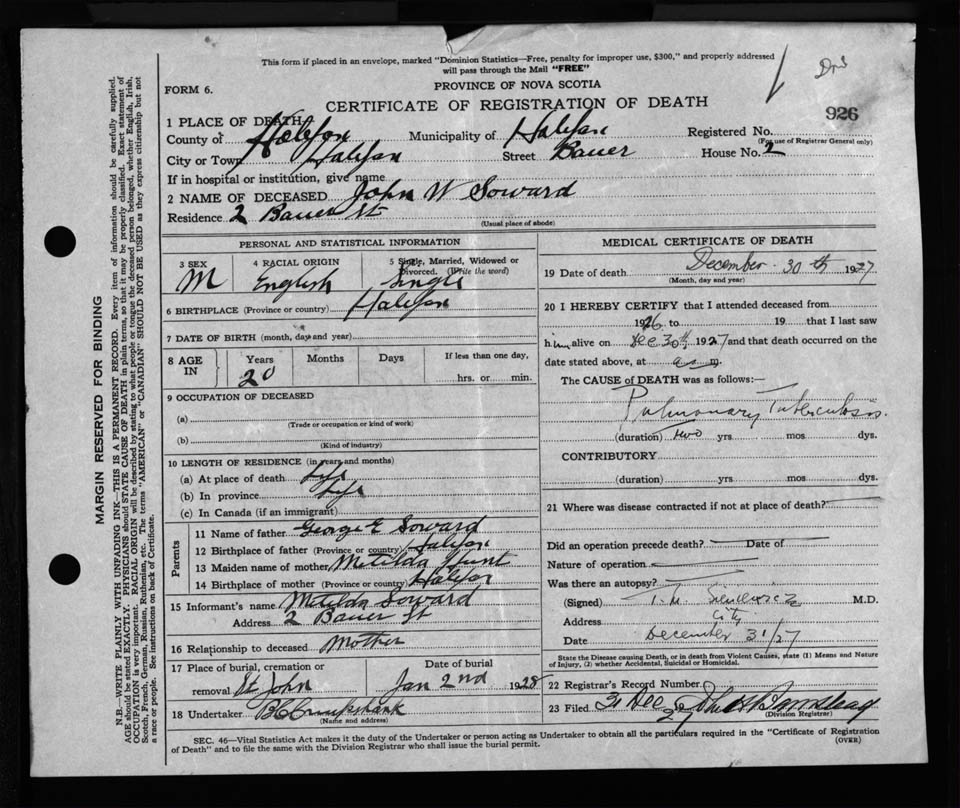 This form if placed in an envelope, marked "Dominion Statistics—Free, penalty for improper use, $300," and properly addressed
will pass through the Mail "FREE"
FORM 6.
PROVINCE OF NOVA SCOTIA
CERTIFICATE OF REGISTRATION OF DEATH
926
1 PLACE OF DEATH
County of Halifax Municipality of Halifax Registered No.
(For use of Registrar General only)
City or Town Halifax Street Bauer House No. 2
If in hospital or institution, give name
2 NAME OF DECEASED John W Soward
Residence 2 Bauer St
(Usual place of abode)
PERSONAL AND STATISTICAL INFORMATION
3 SEX 4 RACIAL ORIGIN 5 Single, Married, Widowed or
Divorced. (Write the word)
M English Single
6 BIRTHPLACE (Province or country) Halifax
7 DATE OF BIRTH (month, day and year)
8 AGE IN Years Months Days If less than one day,
20 hrs. or min.
9 OCCUPATION OF DECEASED
(a)
(Trade or occupation or kind of work)
(b)
(Kind of industry)
10 LENGTH OF RESIDENCE (in years and months)
(a) At place of death Life
(b) In province Life
(c) In Canada (if an immigrant)
Parents
11 Name of father George E Soward
12 Birthplace of father (Province or country) Halifax
13 Maiden name of mother Matilda Hunt
14 Birthplace of mother (Province or country) Halifax
15 Informant's name Matilda Soward
Address 2 Bauer St
16 Relationship to deceased Mother
17 Place of burial, cremation or Date of burial
removal St John Jan 2nd 1928
18 Undertaker
(Name and address)
MEDICAL CERTIFICATE OF DEATH
19 Date of death December 30th 1927
(Month, day and year)
20 I HEREBY CERTIFY that I attended deceased from
1926 to 19 that I last saw
him alive on Dec 30th, 1927 and that death occurred on the
date stated above, at a m.
The CAUSE of DEATH was as follows:—
Pulmonary Tuberculosis
(duration) two yrs mos dys.
CONTRIBUTORY
(duration) yrs mos dys.
21 Where was disease contracted if not at place of death?
Did an operation precede death? Date of
Nature of operation
Was there an autopsy?
(Signed) M.D.
Address City
Date December 31/27
State the Disease causing Death, or in death from Violent Causes, state (1) Means and Nature
of Injury, (2) whether Accidental, Suicidal or Homicidal.
22 Registrar's Record Number
23 Filed 31 Dec 27
(Division Registrar)
SEC. 46—Vital Statistics Act makes it the duty of the Undertaker or person acting as Undertaker to obtain all the particulars required in the "Certificate of Registration
of Death" and to file the same with the Division Registrar who shall issue the burial permit.
(OVER)
MARGIN RESERVED FOR BINDING
N.B.—WRITE PLAINLY WITH UNFADING INK—THIS IS A PERMANENT RECORD. Every item of information should be carefully supplied.
AGE should be stated EXACTLY. PHYSICIANS should STATE CAUSE OF DEATH in plain terms, so that it may be properly classified. Exact statement of
OCCUPATION is very important. RACIAL ORIGIN will be described by stating to what people or tongue the deceased person belonged, whether English, Irish,
Scotch, French, German, Russian, Ruthenian, etc. The terms "AMERICAN" or "CANADIAN" SHOULD NOT BE USED as they express citizenship but not
a race or people. See instructions on back of Certificate.